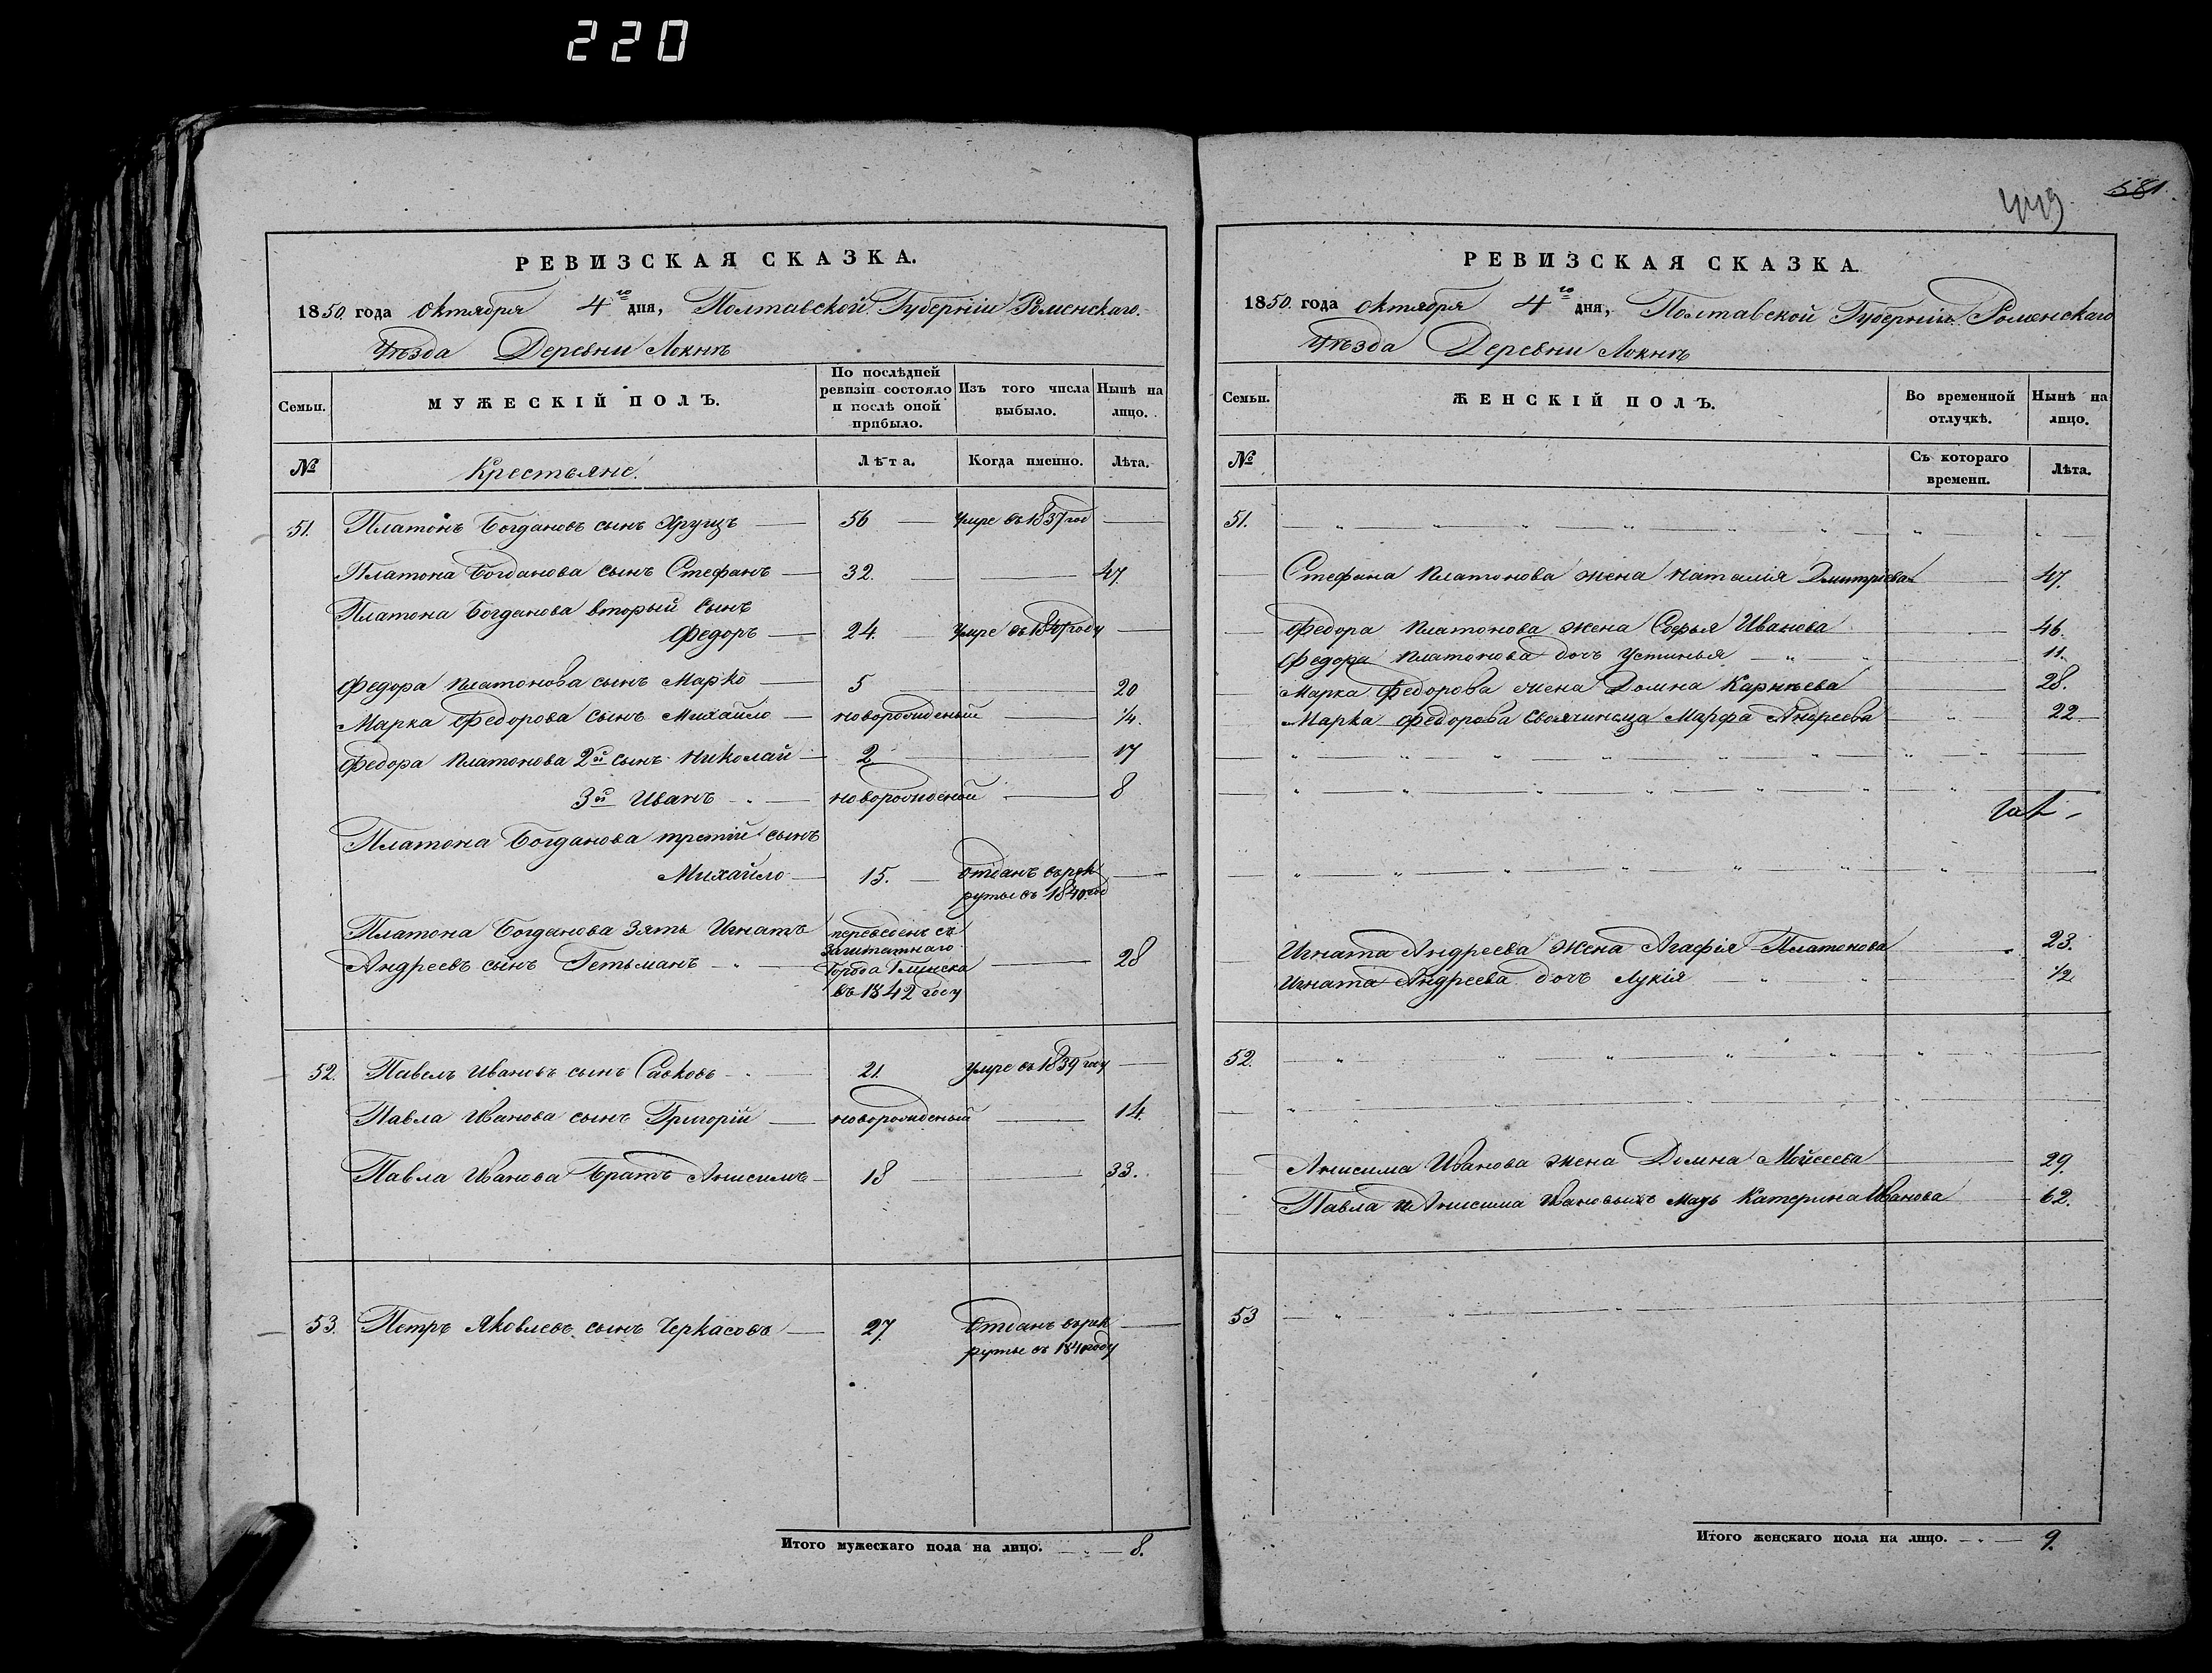 220
РЕВИЗСКАЯ СКАЗКА.
1850 года Октября 4го дня, Полтавской Губерніи Роменскаго
Уѣзда Деревни Локнѣ
Семьи.
МУЖЕСКІЙ ПОЛЪ.
По послѣдней ревизіи состояло и послѣ оной прибыло.
Изъ того числа выбыло.
Нынѣ на лицо.
№
Крестьяне.
Лѣта.
Когда именно.
Лѣта.
51. Платонъ Богдановъ сынъ Хрущъ 56 Умре въ 1837 год
Платона Богданова сынъ Стефанъ 32. 47
Платона Богданова вторый сынъ
Федоръ 24. Умре въ году
Федора Платонова сынъ Марко 5 20
Марка Федорова сынъ Михайло новорожденый 1/4.
Федора Платонова 2й сынъ Николай 2 17
3й Иванъ новорожденой 8
Платона Богданова третій сынъ
Михайло 15. отданъ въ рек
руты въ 1840 год
Платона Богданова зять Игнатъ переведенъ съ
заштатнаго
Андреевъ сынъ Гетьманъ города Глинска 28
въ 1842 году
52. Павелъ Ивановъ сынъ Савковъ 21. Умре въ 1839 году
Павла Иванова сынъ Григорій новорожденый 14.
Павла Иванова братъ Анисимъ 18 33.
53. Петръ Яковлевъ сынъ Черкасовъ 27 Отданъ въ рек
руты въ 1840 году
Итого мужескаго пола на лицо. 8.
581
449
РЕВИЗСКАЯ СКАЗКА.
1850 года Октября 4го дня, Полтавской Губерніи Роменскаго
Уѣзда Деревни Локнѣ
Семьи.
ЖЕНСКІЙ ПОЛЪ.
Во временной отлучкѣ.
Нынѣ на лицо.
№
Съ котораго времени.
Лѣта.
51.
Стефана Платонова жена Наталія Дмитріева 47.
Федора Платонова жена Иванова 46.
Федора Платонова дочь Устинья 11.
Марка Федорова жена Домна Карнѣева 28.
Марка Федорова своячиница Марфа Андреева 22
Игната Андреева жена Агафія Платонова 23.
Игната Андреева дочь Лукія 1/2
52.
Анисима Иванова жена Домна Мойсеева 29.
Павла и Анисима Ивановыхъ мать Катерина Иванова 62.
53
Итого женскаго пола на лицо. 9.